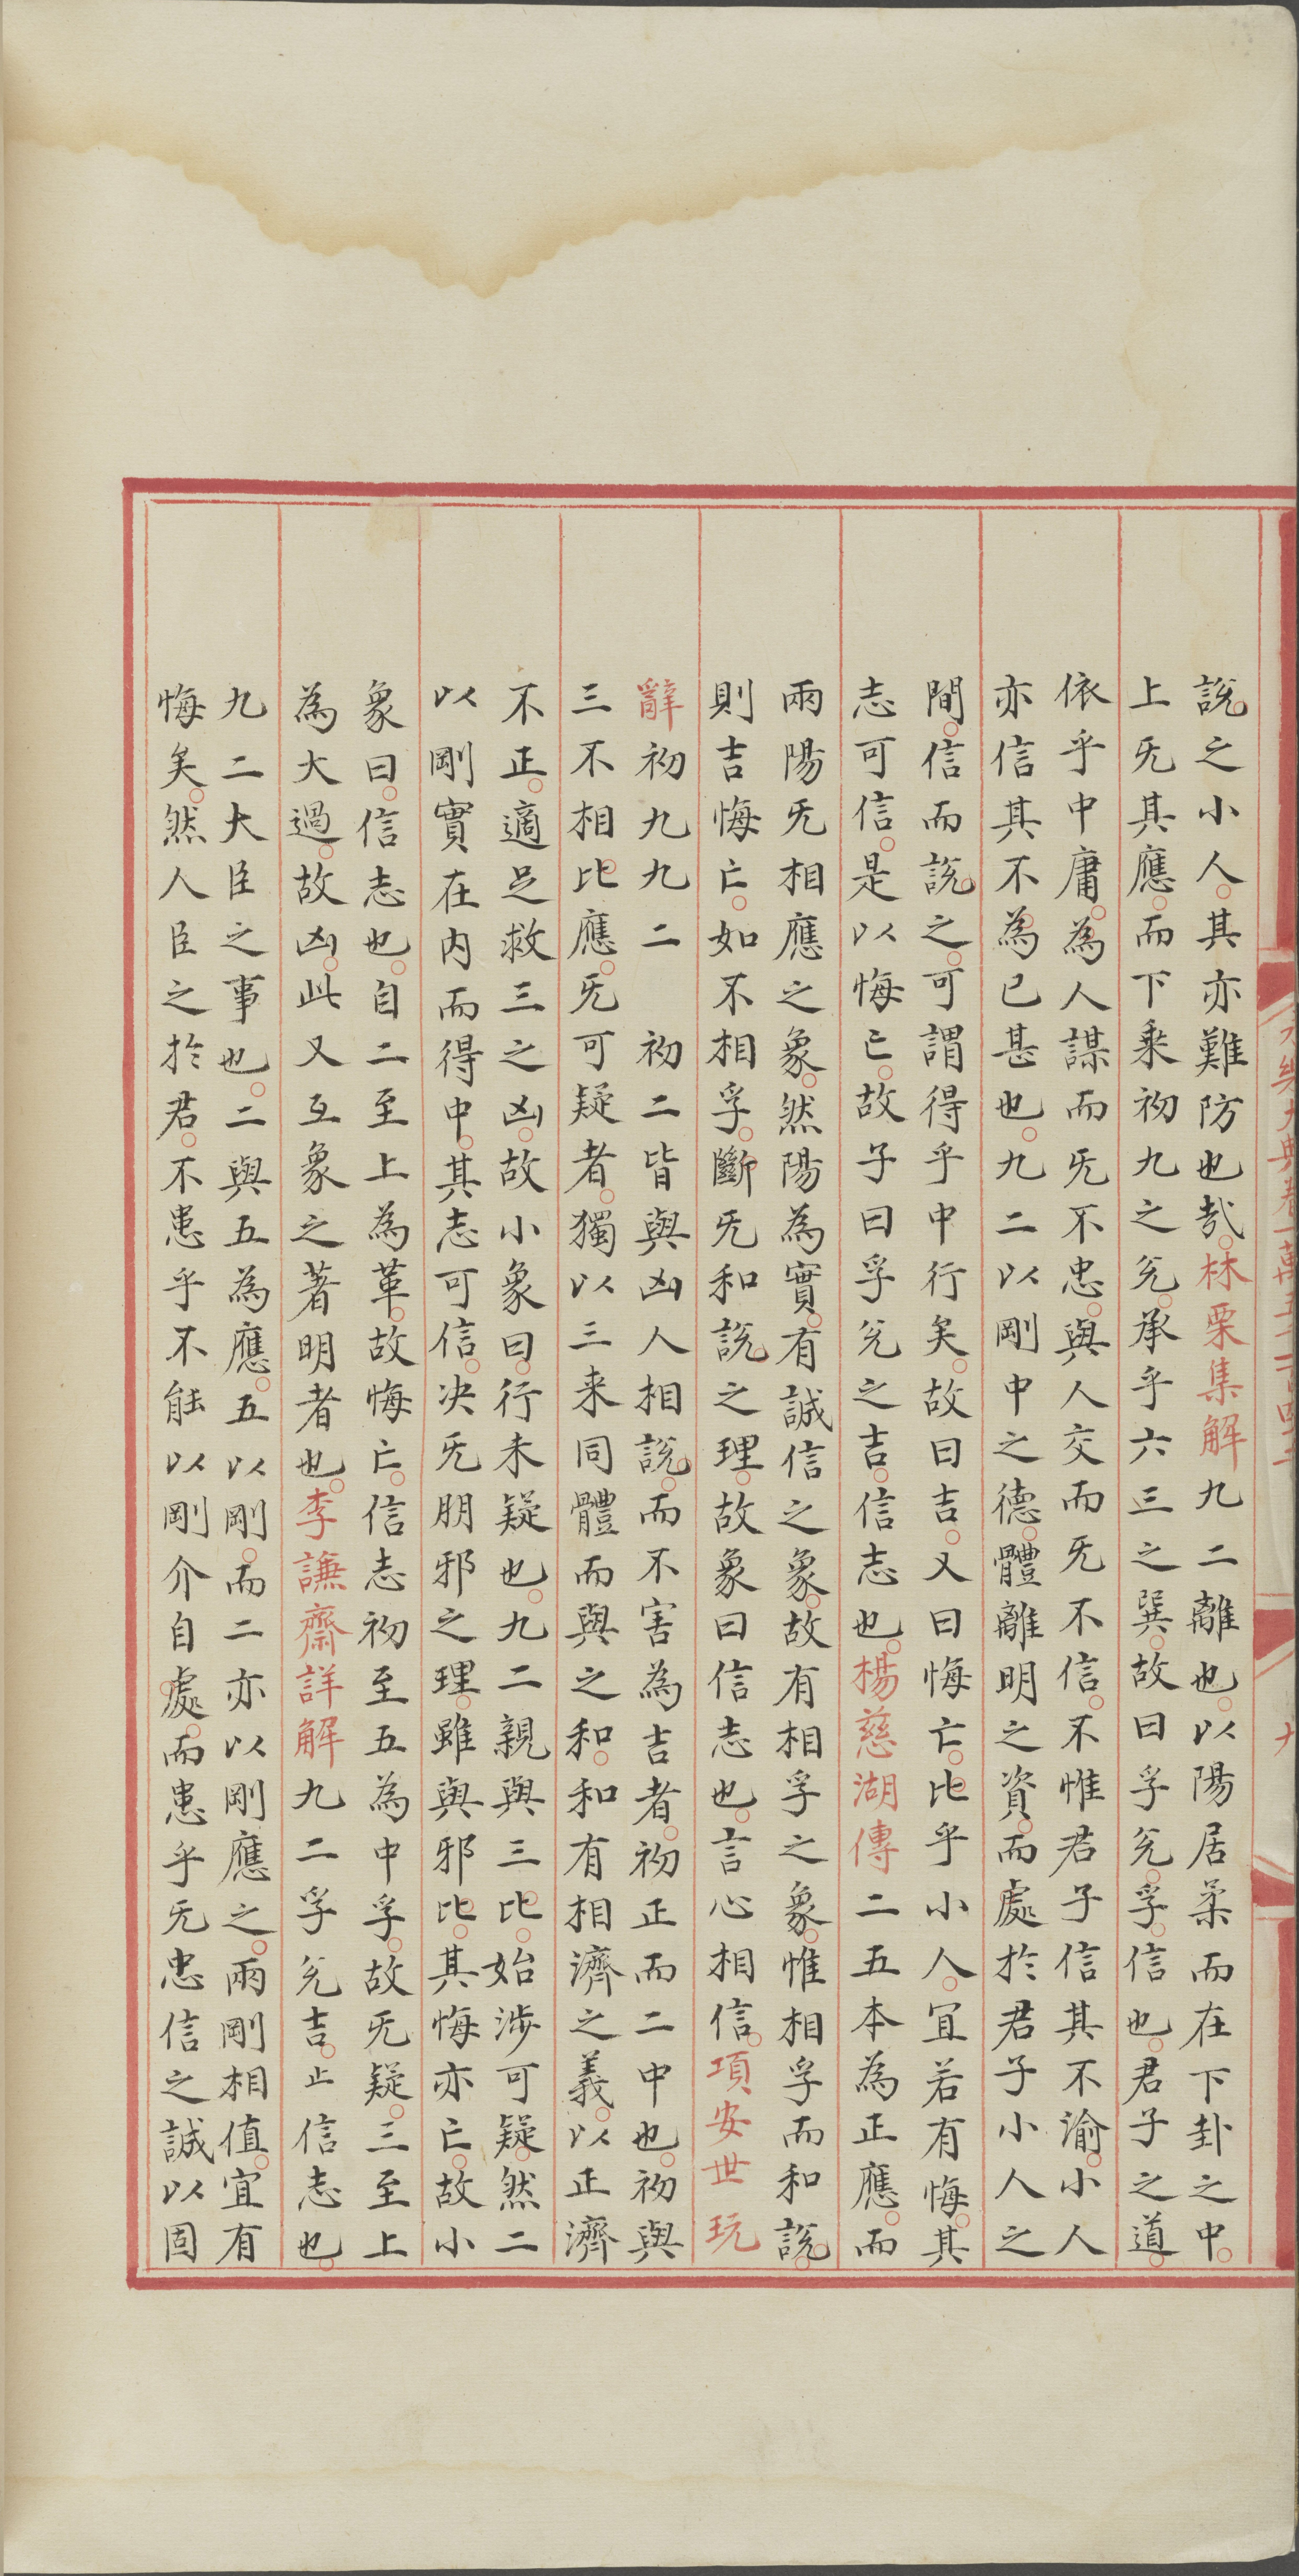 說之小人其亦難防也哉林栗集解九二離也以陽居柔而在下卦之中
上旡其應而下乘初九之兊承乎六三之巽故曰孚兊孚信也君子之道
依乎中庸為人謀而旡不忠與人交而旡不信不惟君子信其不渝小人
亦信其不為已甚也九二以剛中之德體離明之資而處於君子小人之
間信而說之可謂得乎中行矣故曰吉又曰悔亡比乎小人宜若有悔其
志可信是以悔亡故子曰孚兊之吉信志也楊慈湖傳二五本為正應而
兩陽旡相應之象然陽為實有誠信之象故有相孚之象惟相孚而和說
則吉悔亡如不相孚斷旡和說之理故象曰信志也言心相信項安世玩
辭初九九二 初二皆與凶人相說而不害為吉者初正而二中也初與
三不相比應旡可疑者獨以三来同體而與之和和有相濟之義以正濟
不正適足救三之凶故小象曰行未疑也九二親與三比始涉可疑然二
以剛實在内而得中其志可信决旡朋邪之理雖與邪比其悔亦亡故小
象曰信志也自二至上為革故悔亡信志初至五為中孚故旡疑三至上
為大過故凶此又互象之著明者也李謙齋詳解九二孚兊吉止信志也
九二大臣之事也二與五為應五以剛而二亦以剛應之兩剛相值宜有
悔矣然人臣之於君不患乎不能以剛介自處而患乎旡忠信之誠以固